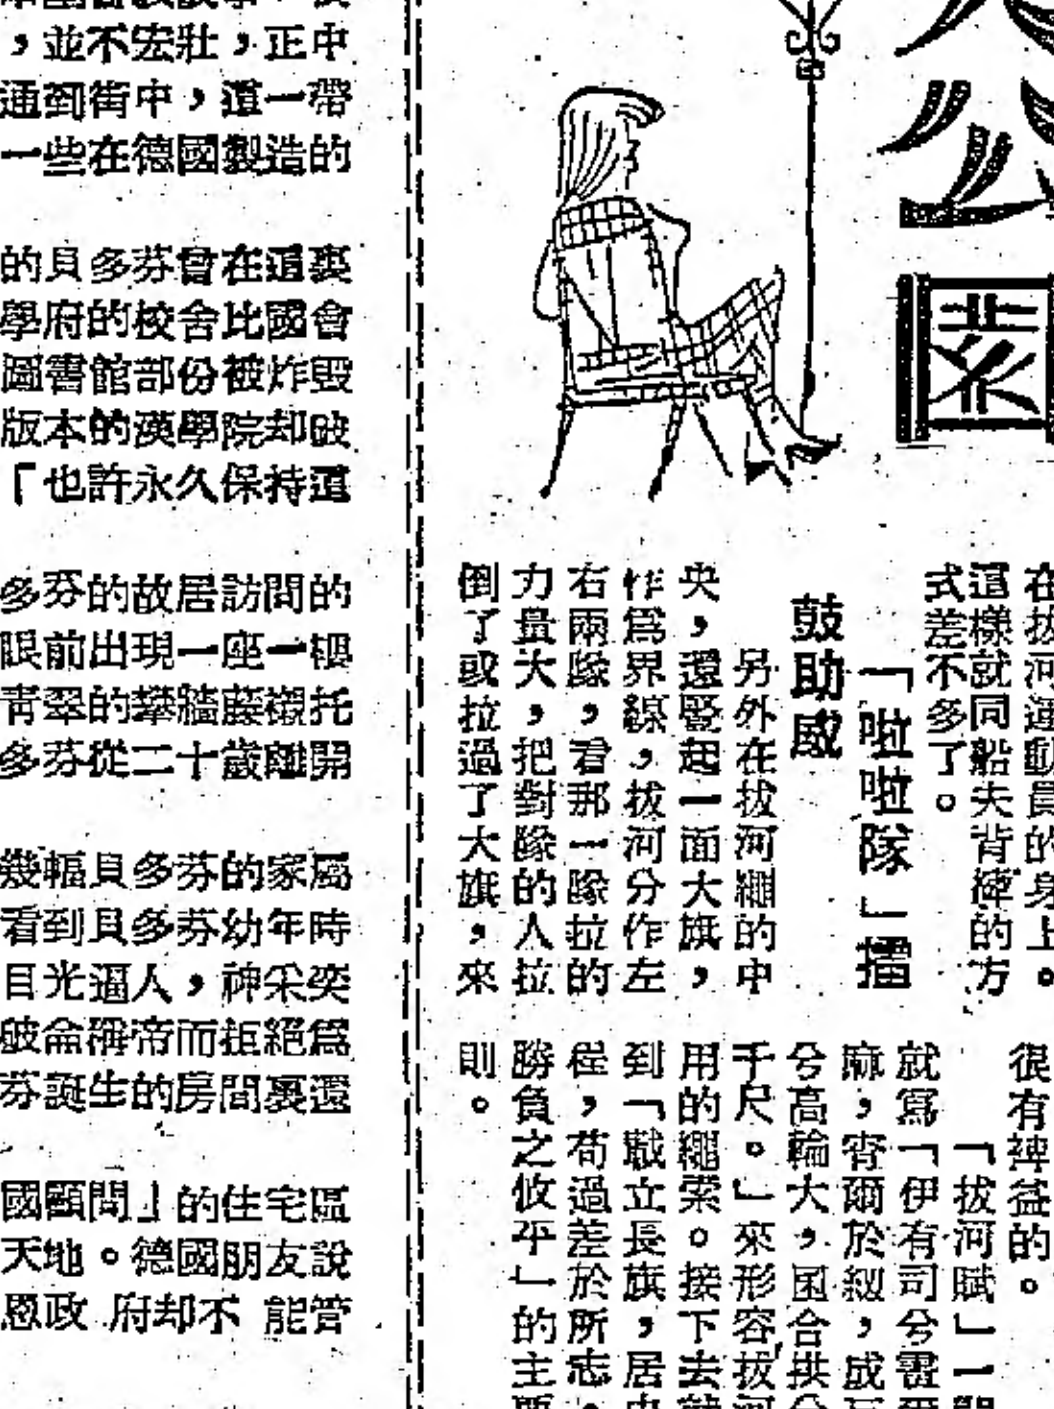 ，並不宏壯，正中
通到街中，這一帶
一些在德國製造的
的貝多芬曾在這裏
學府的校舍比國會
圖書館部份被炸毀
版本的漢學院却缺
「也許永久保持這
多芬的故居訪問的
眼前出現一座一樓
青翠的攀牆藤襯托
多芬從二十歲離開
幾幅貝多芬的家屬
看到貝多芬幼年時
目光逼人，神采奕
破侖稱帝而拒絕爲
芬誕生的房間裏還
國顧問」的住宅區
天地。德國朋友說
恩政府却不能管
公園
在拔河運動員的身上。
這樣就同船夫背縴的方
式差不多了。
「啦啦隊」擂
鼓助威
另外在拔河繩的中
央，還豎起一面大旗，
作爲界線，拔河分作左
右兩隊，看那一隊拉的
力量大，把對隊的人拉
倒了或拉過了大旗，來
很有裨益的。
「拔河賦」一
就寫「伊有司兮
麻，宵爾於紉，成
兮高輪大，圍合拱
千尺。」來形容拔河
用的繩索。接下去
到「戢立長旗，居
程，苟過差於所志，
勝負之攸平」的主要
則。